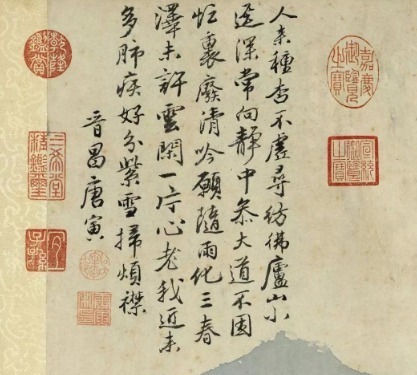 嘉慶御覽之寶
宣統御覽之寶
人来種杏不虛尋彷彿廬山小
逕深常向靜中參大道不因
忙裏廢清吟願隨雨化三春
澤未許雲閑一片心老我近来
多肺疾好分紫雪掃煩襟
晉昌唐寅
乾隆鑑賞
三希堂精鑑璽
宜子孫